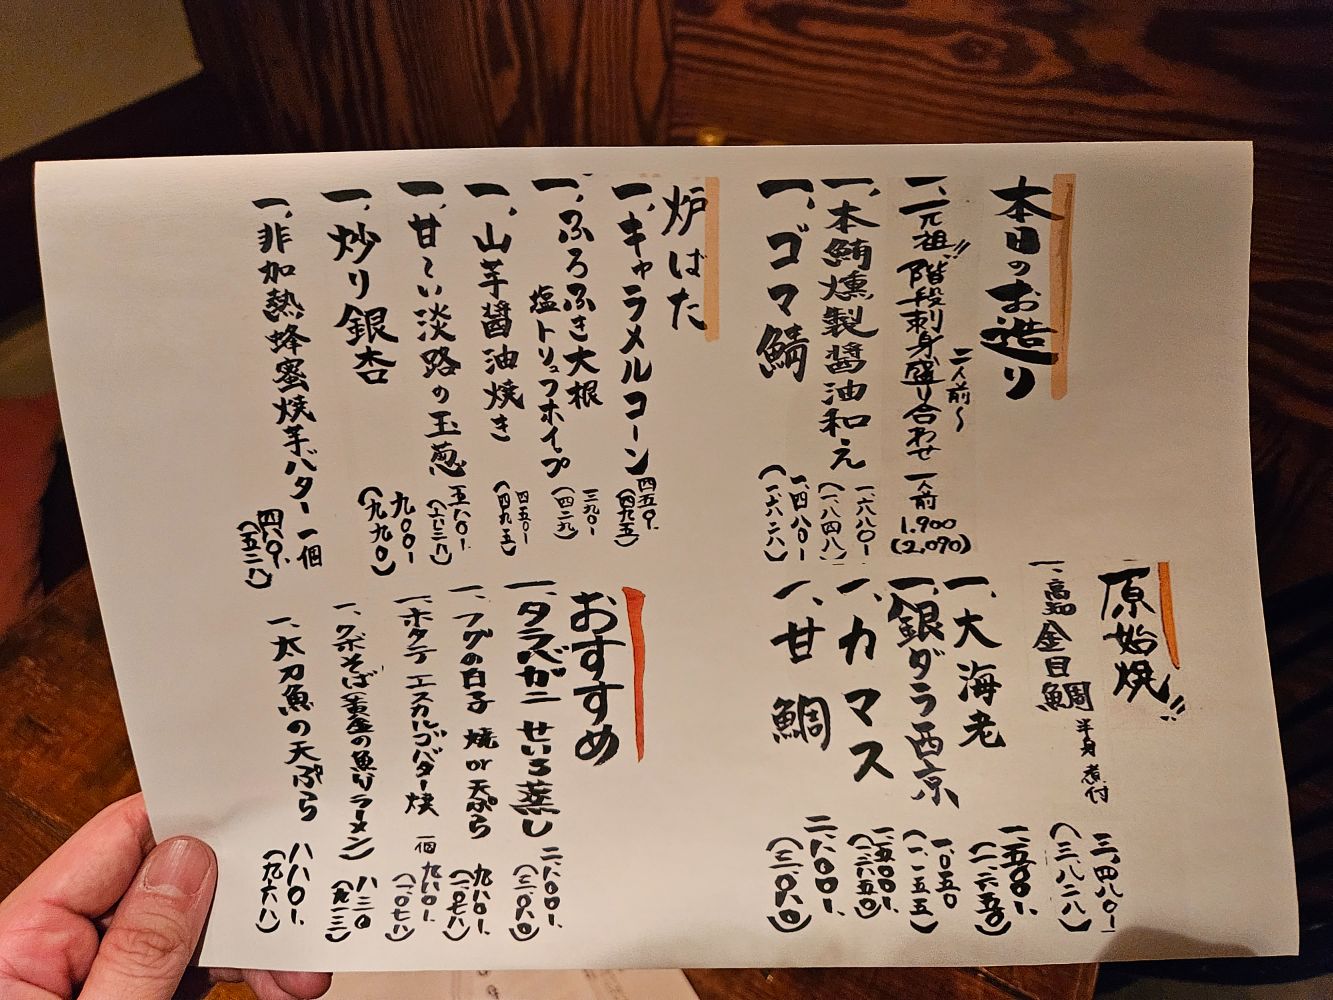 本日のお造り
一、元祖!!階段刺身盛り合わせ 一人前 1.900 (2,090)
二人前〜
一、本鮪燻製醤油和え 一、六八〇- (一、八四八)
一、ゴマ鯖 一、四八〇- (一、六二八)
炉ばた
一、キャラメルコーン 四五〇- (四九五)
一、ふろふき大根
塩トリュフホイップ 三九〇- (四二九)
一、山芋醤油焼き 四五〇- (四九五)
一、甘〜い淡路の玉葱 五八〇- (六三八)
一、炒り銀杏 九〇〇- (九九〇)
一、非加熱蜂蜜焼芋バター 一個 四八〇- (五二八)
原始焼!!
一、高知金目鯛 半身 煮付 三、四八〇- (三、八二八)
一、大海老 一、五〇〇- (一、六五〇)
一、銀ダラ西京 一、〇五〇 (一、一五五)
一、カマス 一、五〇〇- (一、六五〇)
一、甘鯛 二、八〇〇- (三、〇八〇)
おすすめ
一、タラバガニ せいろ蒸し 二、八〇〇- (三、〇八〇)
一、フグの白子 焼or天ぷら 九八〇- (一、〇七八)
一、ホタテ エスカルゴバター焼 一個 九八〇- (一、〇七八)
一、クボそば(黄金の魚介ラーメン) 八三〇 (九一三)
一、太刀魚の天ぷら 八八〇- (九六八)